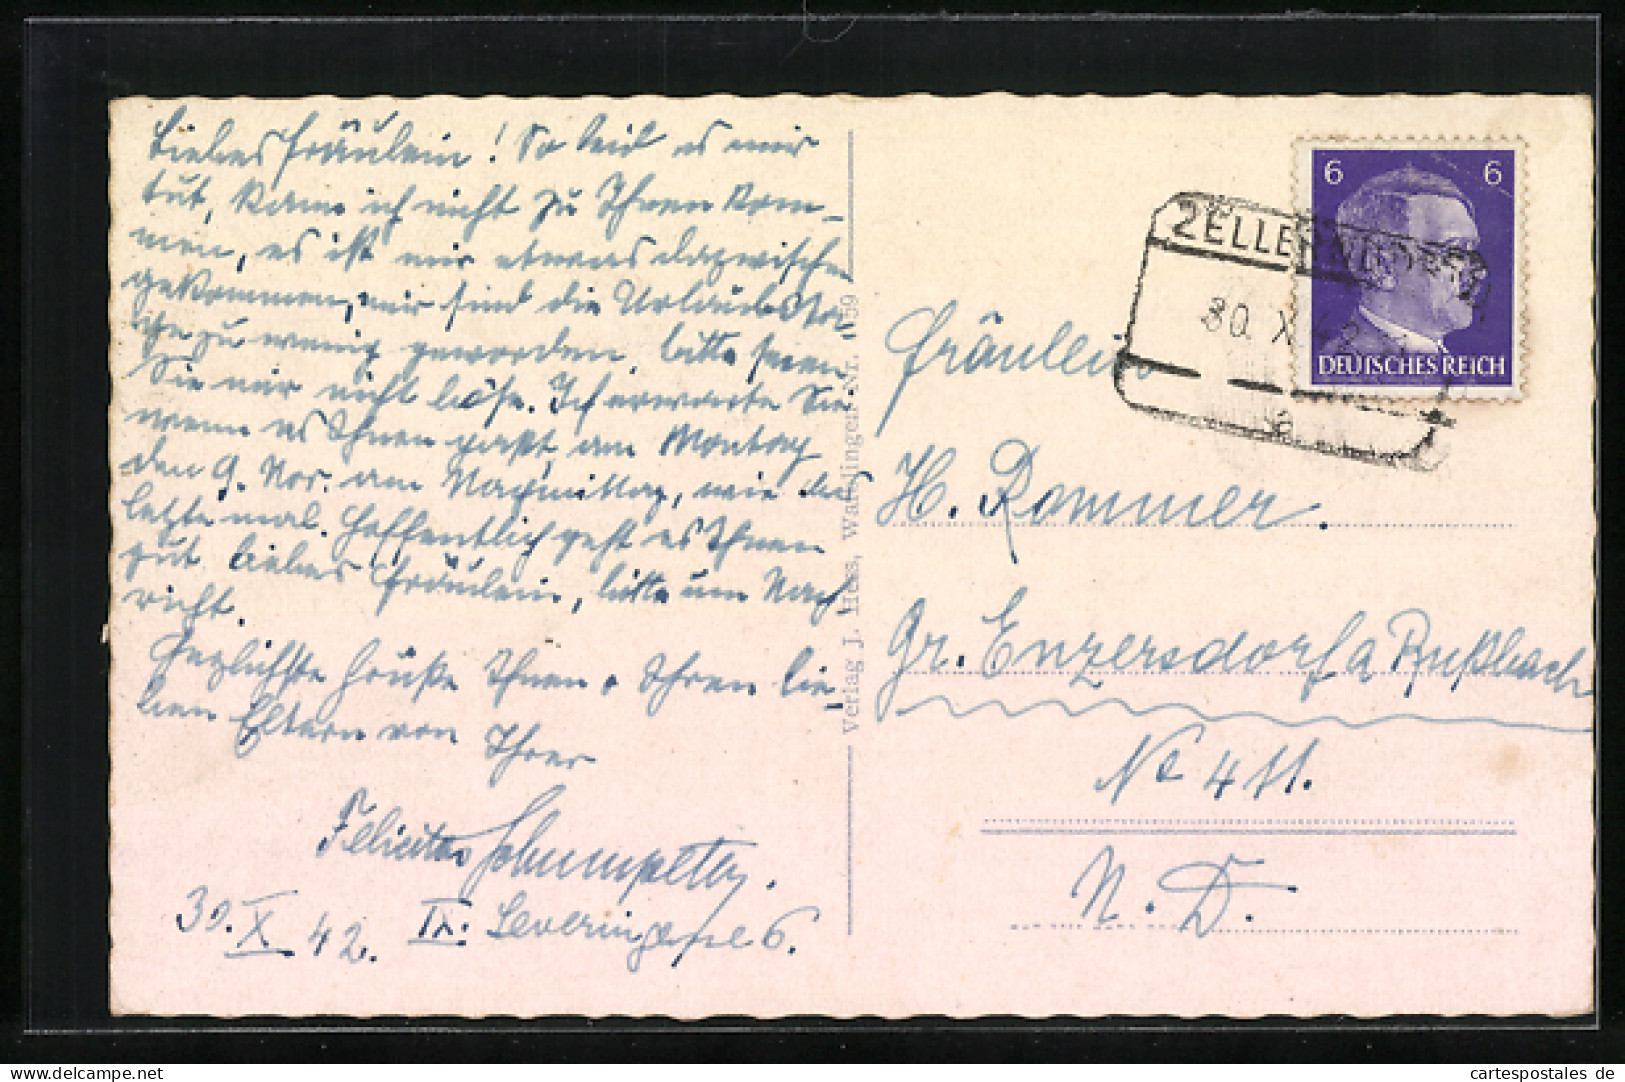 Liebes Fräulein! So leid es mir
tut, kann ich nicht zu Ihnen kom-
men, es ist mir etwas dazwischen
gekommen, mir sind die Urlaubsta-
ge zu wenig geworden, bitte seien
Sie mir nicht böse. Ich erwarte Sie
wenn es Ihnen paßt am Montag
den 9. Nov. am Nachmittag, wie das
letzte mal. Hoffentlich geht es Ihnen
gut liebes Fräulein, bitte um Nach-
richt.
Herzlichste Grüße Ihnen u. Ihren lie-
ben Eltern von Ihrer
Felicitas
30. X. 42. IX: Severingasse 6.
Verlag J. Hess, Waiblingen Nr. 1159
ZELLERNDORF
30. X. 42
a
6 6
DEUTSCHES REICH
Fräulein
H. Rammer.
Gr. Enzersdorf a Rußbach
No 411.
N. D.
cartespostales de
cartespostales.de